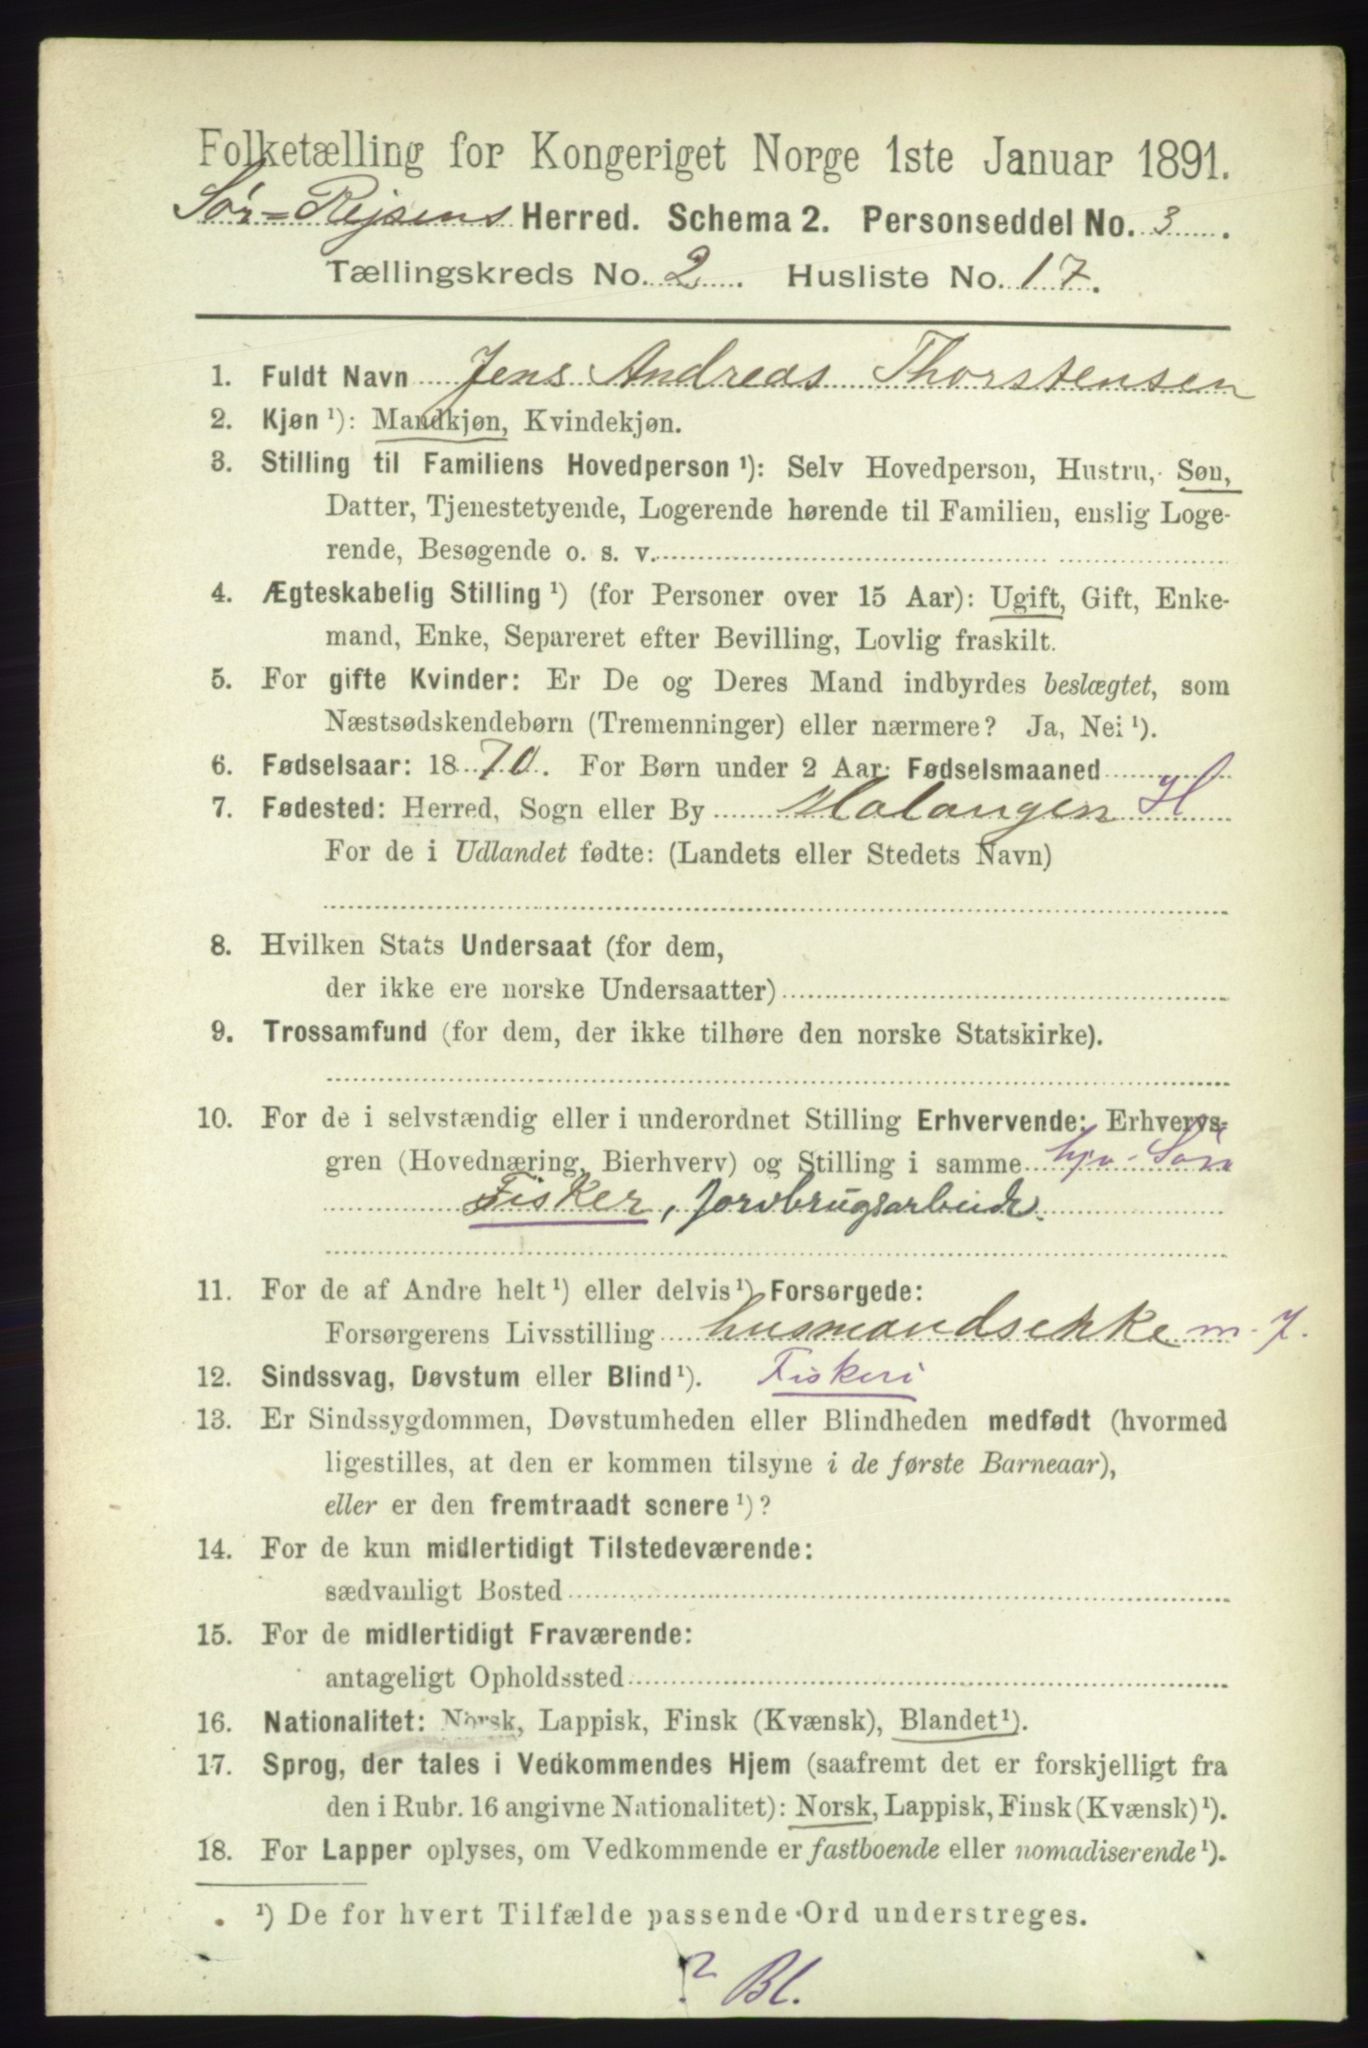 Folketælling for Kongeriget Norge 1ste Januar 1891.
Sør-Rejsens Herred. Schema 2. Personseddel No. 3.
Tællingskreds No. 2. Husliste No. 17.
1. Fuldt Navn Jens Andreas Thorstensen
2. Kjøn ¹): Mandkjøn, Kvindekjøn.
3. Stilling til Familiens Hovedperson ¹): Selv Hovedperson, Hustru, Søn,
Datter, Tjenestetyende, Logerende hørende til Familien, enslig Loge-
rende, Besøgende o. s. v.
4. Ægteskabelig Stilling ¹) (for Personer over 15 Aar): Ugift, Gift, Enke-
mand, Enke, Separeret efter Bevilling, Lovlig fraskilt.
5. For gifte Kvinder: Er De og Deres Mand indbyrdes beslægtet, som
Næstsødskendebørn (Tremenninger) eller nærmere? Ja, Nei ¹).
6. Fødselsaar: 1870. For Børn under 2 Aar: Fødselsmaaned
7. Fødested: Herred, Sogn eller By Malangen H
For de i Udlandet fødte: (Landets eller Stedets Navn)
8. Hvilken Stats Undersaat (for dem,
der ikke ere norske Undersaatter)
9. Trossamfund (for dem, der ikke tilhøre den norske Statskirke).
10. For de i selvstændig eller i underordnet Stilling Erhvervende: Erhvervs-
gren (Hovednæring, Bierhverv) og Stilling i samme hjv-Søn
Fisker, jordbrugsarbeide.
11. For de af Andre helt ¹) eller delvis ¹) Forsørgede:
Forsørgerens Livsstilling husmandsenke m. J.
12. Sindssvag, Døvstum eller Blind ¹). Fiskeri
13. Er Sindssygdommen, Døvstumheden eller Blindheden medfødt (hvormed
ligestilles, at den er kommen tilsyne i de første Barneaar),
eller er den fremtraadt senere ¹)?
14. For de kun midlertidigt Tilstedeværende:
sædvanligt Bosted
15. For de midlertidigt Fraværende:
antageligt Opholdssted
16. Nationalitet: Norsk, Lappisk, Finsk (Kvænsk), Blandet ¹).
17. Sprog, der tales i Vedkommendes Hjem (saafremt det er forskjelligt fra
den i Rubr. 16 angivne Nationalitet): Norsk, Lappisk, Finsk (Kvænsk) ¹).
18. For Lapper oplyses, om Vedkommende er fastboende eller nomadiserende ¹).
¹) De for hvert Tilfælde passende Ord understreges.
? Bl.